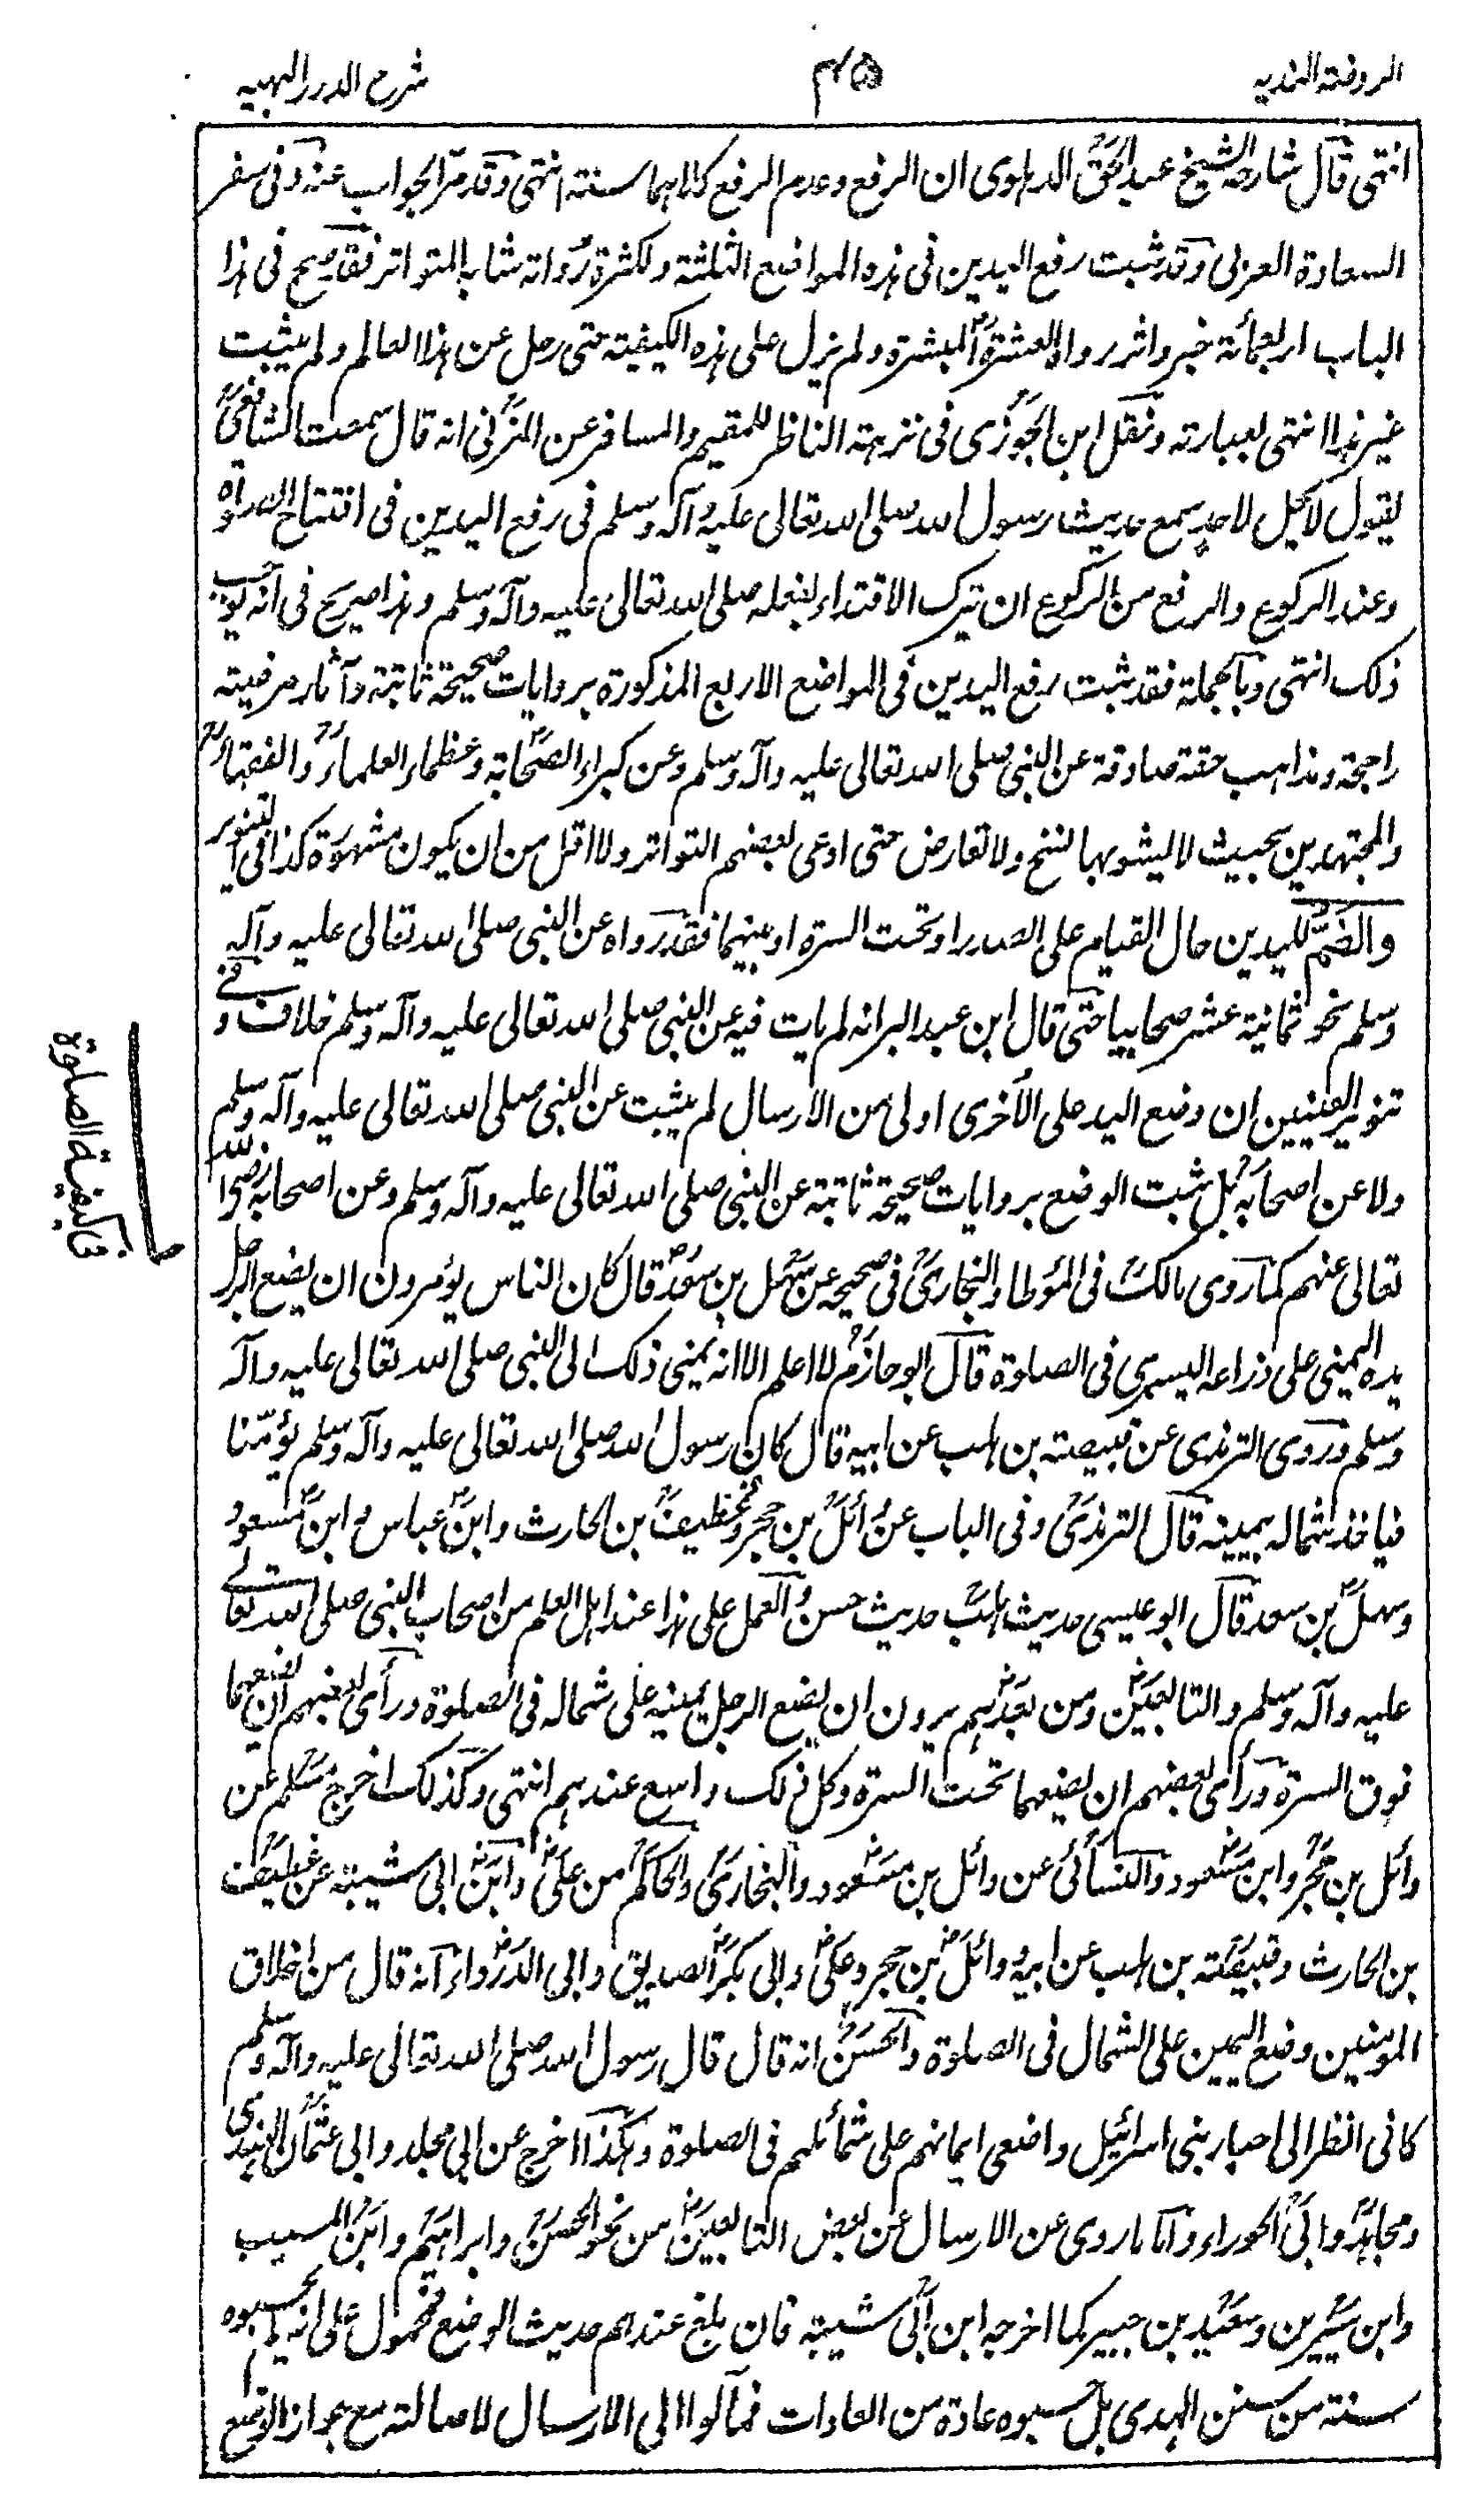 الروضة الندية
٥٤م
شرح الدرر البهية
انتهى قال شارحه الشيخ عبد الحق الدهلوى ان الرفع وعدم الرفع كلاهما سنة انتهى وقد مر الجواب عنه وفى سفر
السعادة العربى وقد ثبت رفع اليدين فى هذه المواضع الثلثة ولكثرة رواته شابه المتواتر فقد صح فى هذا
الباب اربعمائة خبر واثر رواه العشرة المبشرة ولم يزل على هذه الكيفية حتى رحل عن هذا العالم ولم يثبت
غير هذا انتهى بعبارته ونقل ابن الجوزى فى نزهة الناظر للمقيم والمسافر عن المزنى انه قال سمعت الشافعى
يقول لا يحل لاحد سمع حديث رسول الله صلى الله تعالى عليه وآله وسلم فى رفع اليدين فى افتتاح الصلوة
وعند الركوع والرفع من الركوع ان يترك الاقتداء بفعله صلى الله تعالى عليه وآله وسلم وهذا صريح فى انه يوجب
ذلك انتهى وبالجملة فقد ثبت رفع اليدين فى المواضع الاربع المذكورة بروايات صحيحة ثابتة وآثار مرضية
راجحة ومذاهب حقة صادقة عن النبى صلى الله تعالى عليه وآله وسلم وعن كبراء الصحابة وعظماء العلماء والفقهاء
والمجتهدين بحيث لا يشوبها نسخ ولا تعارض حتى ادعى بعضهم التواتر ولا اقل من ان يكون مشهورة كذا فى التنوير
والضم لليدين حال القيام على الصدر او تحت السرة او بينهما فقد رواه عن النبى صلى الله تعالى عليه وآله
وسلم نحو ثمانية عشر صحابيا حتى قال ابن عبد البر انه لم يات فيه عن النبى صلى الله تعالى عليه وآله وسلم خلاف وفى
تنوير العينين ان وضع اليد على الأخرى اولى من الارسال لم يثبت عن النبى صلى الله تعالى عليه وآله وسلم
ولا عن اصحابه بل ثبت الوضع بروايات صحيحة ثابتة عن النبى صلى الله تعالى عليه وآله وسلم وعن اصحابه رضى الله
تعالى عنهم كما روى مالك فى المؤطا والبخارى فى صحيحه عن سهل بن سعد قال كان الناس يؤمرون ان يضع الرجل
يده اليمنى على ذراعه اليسرى فى الصلوة قال ابو حازم لا اعلم الا انه ينمى ذلك الى النبى صلى الله تعالى عليه وآله
وسلم وروى الترمذى عن قبيصة بن هلب عن ابيه قال كان رسول الله صلى الله تعالى عليه وآله وسلم يؤمّنا
فياخذ شماله بيمينه قال الترمذى وفى الباب عن وائل بن حجر وغطيف بن الحارث وابن عباس وابن مسعود
وسهل بن سعد قال ابو عيسى حديث هلب حديث حسن والعمل على هذا عند اهل العلم من اصحاب النبى صلى الله تعالى
عليه وآله وسلم والتابعين ومن بعدهم يرون ان يضع الرجل يمينه على شماله فى الصلوة ورأى بعضهم ان يضعهما
فوق السرة ورأى بعضهم ان يضعهما تحت السرة وكل ذلك واسع عندهم انتهى وكذلك اخرج مسلم عن
وائل بن حجر وابن مسعود والنسائى عن وائل بن مسعود والبخارى والحاكم من على وابن ابى شيبة عن غطيف
بن الحارث وقبيصة بن هلب عن ابيه ووائل بن حجر وعلى وابى بكر الصديق وابى الدرداء انه قال من اخلاق
المومنين وضع اليمين على الشمال فى الصلوة والحسن انه قال قال رسول الله صلى الله تعالى عليه وآله وسلم
كانى انظر الى احبار بنى اسرائيل واضعى ايمانهم على شمائلهم فى الصلوة وهكذا اخرج عن ابى مجلد وابى عثمان النهدى
ومجاهد وابى الحوراء واما ما روى عن الارسال عن بعض التابعين من نحو الحسن وابراهيم وابن المسيب
وابن سيرين وسعيد بن جبير كما اخرجه ابن ابى شيبة فان بلغ عندهم حديث الوضع فمحمول على انه لم يحسبوه
سنة من سنن الهدى بل حسبوه عادة من العادات فمالوا الى الارسال لاصالته مع جواز الوضع
ف كيفية الصلوة